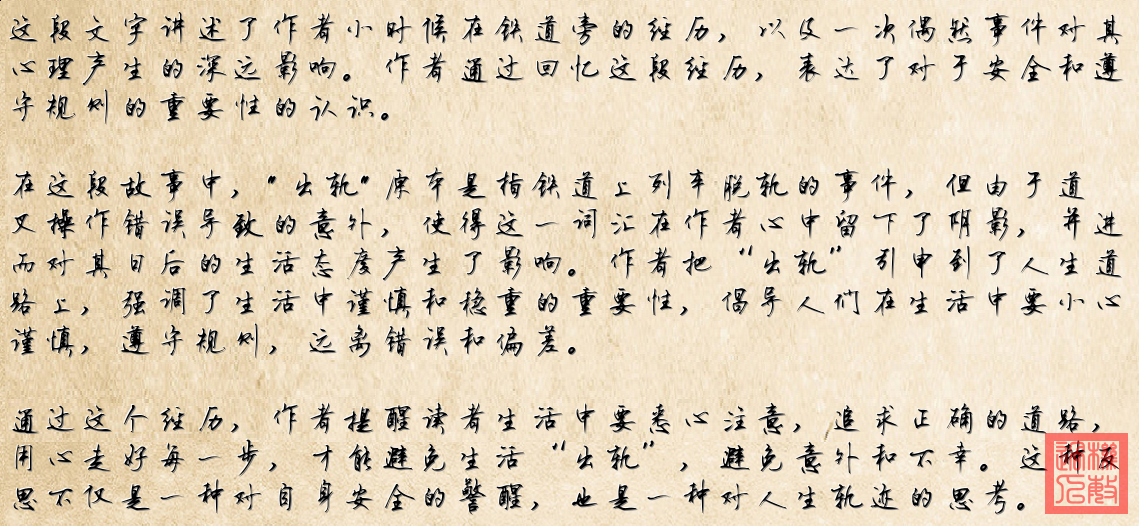 这段文字讲述了作者小时候在铁道旁的经历，以及一次偶然事件对其
心理产生的深远影响。作者通过回忆这段经历，表达了对于安全和遵
守规则的重要性的认识。
在这段故事中，“出轨”原本是指铁道上列车脱轨的事件，但由于道
叉操作错误导致的意外，使得这一词汇在作者心中留下了阴影，并进
而对其日后的生活态度产生了影响。作者把“出轨”引申到了人生道
路上，强调了生活中谨慎和稳重的重要性，倡导人们在生活中要小心
谨慎，遵守规则，远离错误和偏差。
通过这个经历，作者提醒读者生活中要悉心注意，追求正确的道路，
用心走好每一步，才能避免生活“出轨”，避免意外和不幸。这种反
思不仅是一种对自身安全的警醒，也是一种对人生轨迹的思考。